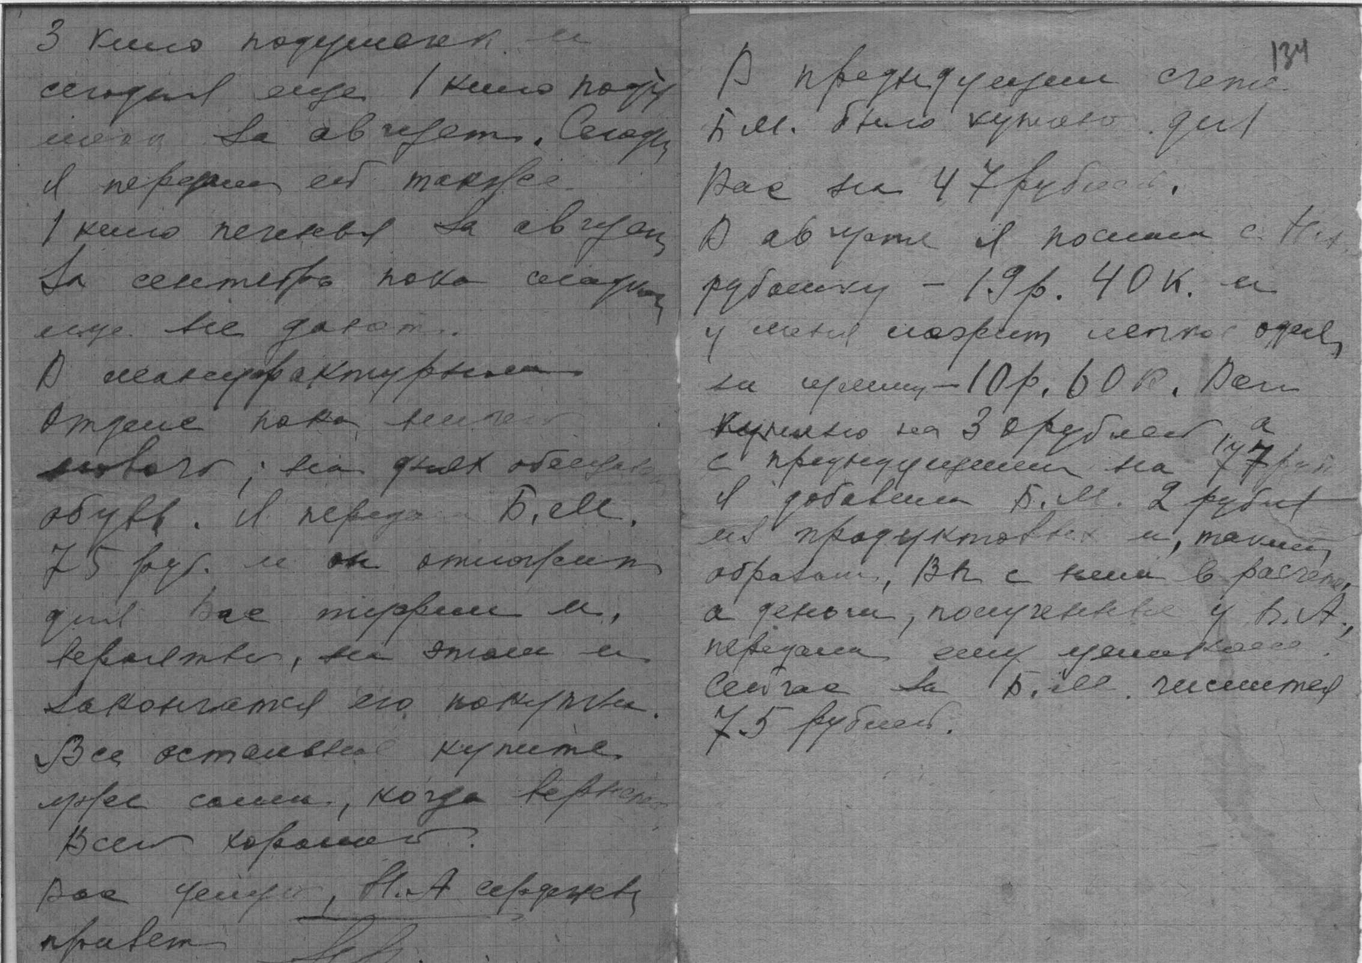 3 кило подушечек и
сегодня еще 1 кило поду
шек за август. Сегодн
я передам ей также
1 кило печенья за август
За сентябрь пока сладких
еще не дают.
В мануфактурном
отделе пока ничего
нового; на днях обещали
обувь. Я передал Б.М.
75 руб. и он отложит
для Вас туфли и,
вероятно, на этом и
закончатся его покупки.
Все остальное купите
уже сами, когда вернетесь
Всего хорошего.
Вас целую, Н.А сердечный
привет
134
В предыдущем счете
Б.М. было куплено для
Вас на 47 рублей.
В августе я послала с Н.А.
рубашку – 19р. 40к. и
у меня лежит летнее одеял
на сумму – 10р. 60к. Вам
куплено на 30 рублей, а
с предыдущими на 77 руб
Я добавила Б.М. 2 рубля
из продуктовых и, таким
образом, Вы с ним в расчете,
а деньги, полученные у В.А.,
передала ему целиком.
Сейчас за Б.М. числится
75 рублей.